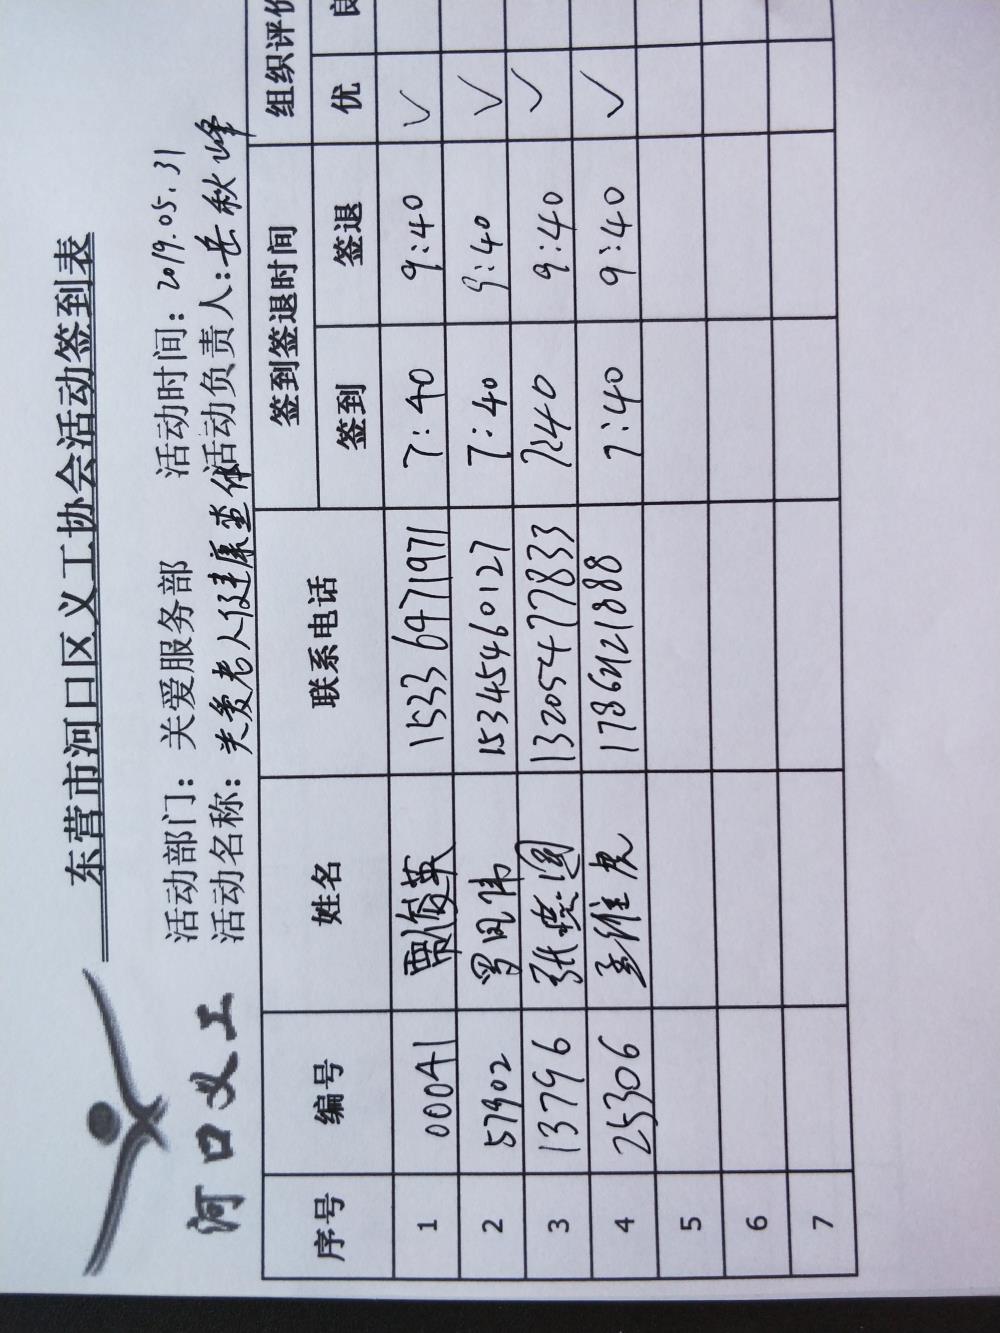 东营市河口区义工协会活动签到表
河口义工
活动部门：关爱服务部 活动时间：2019.05.31
活动名称：关爱老人健康查体 活动负责人：岳秋峰
序号 编号 姓名 联系电话 签到签退时间 组织评价
签到 签退 优 良
1 00041 贾俊英 15336471971 7:40 9:40 ✓
2 57902 15345460127 7:40 9:40 ✓
3 13796 13205477833 7:40 9:40 ✓
4 25306 孟维虎 7:40 9:40 ✓
5
6
7